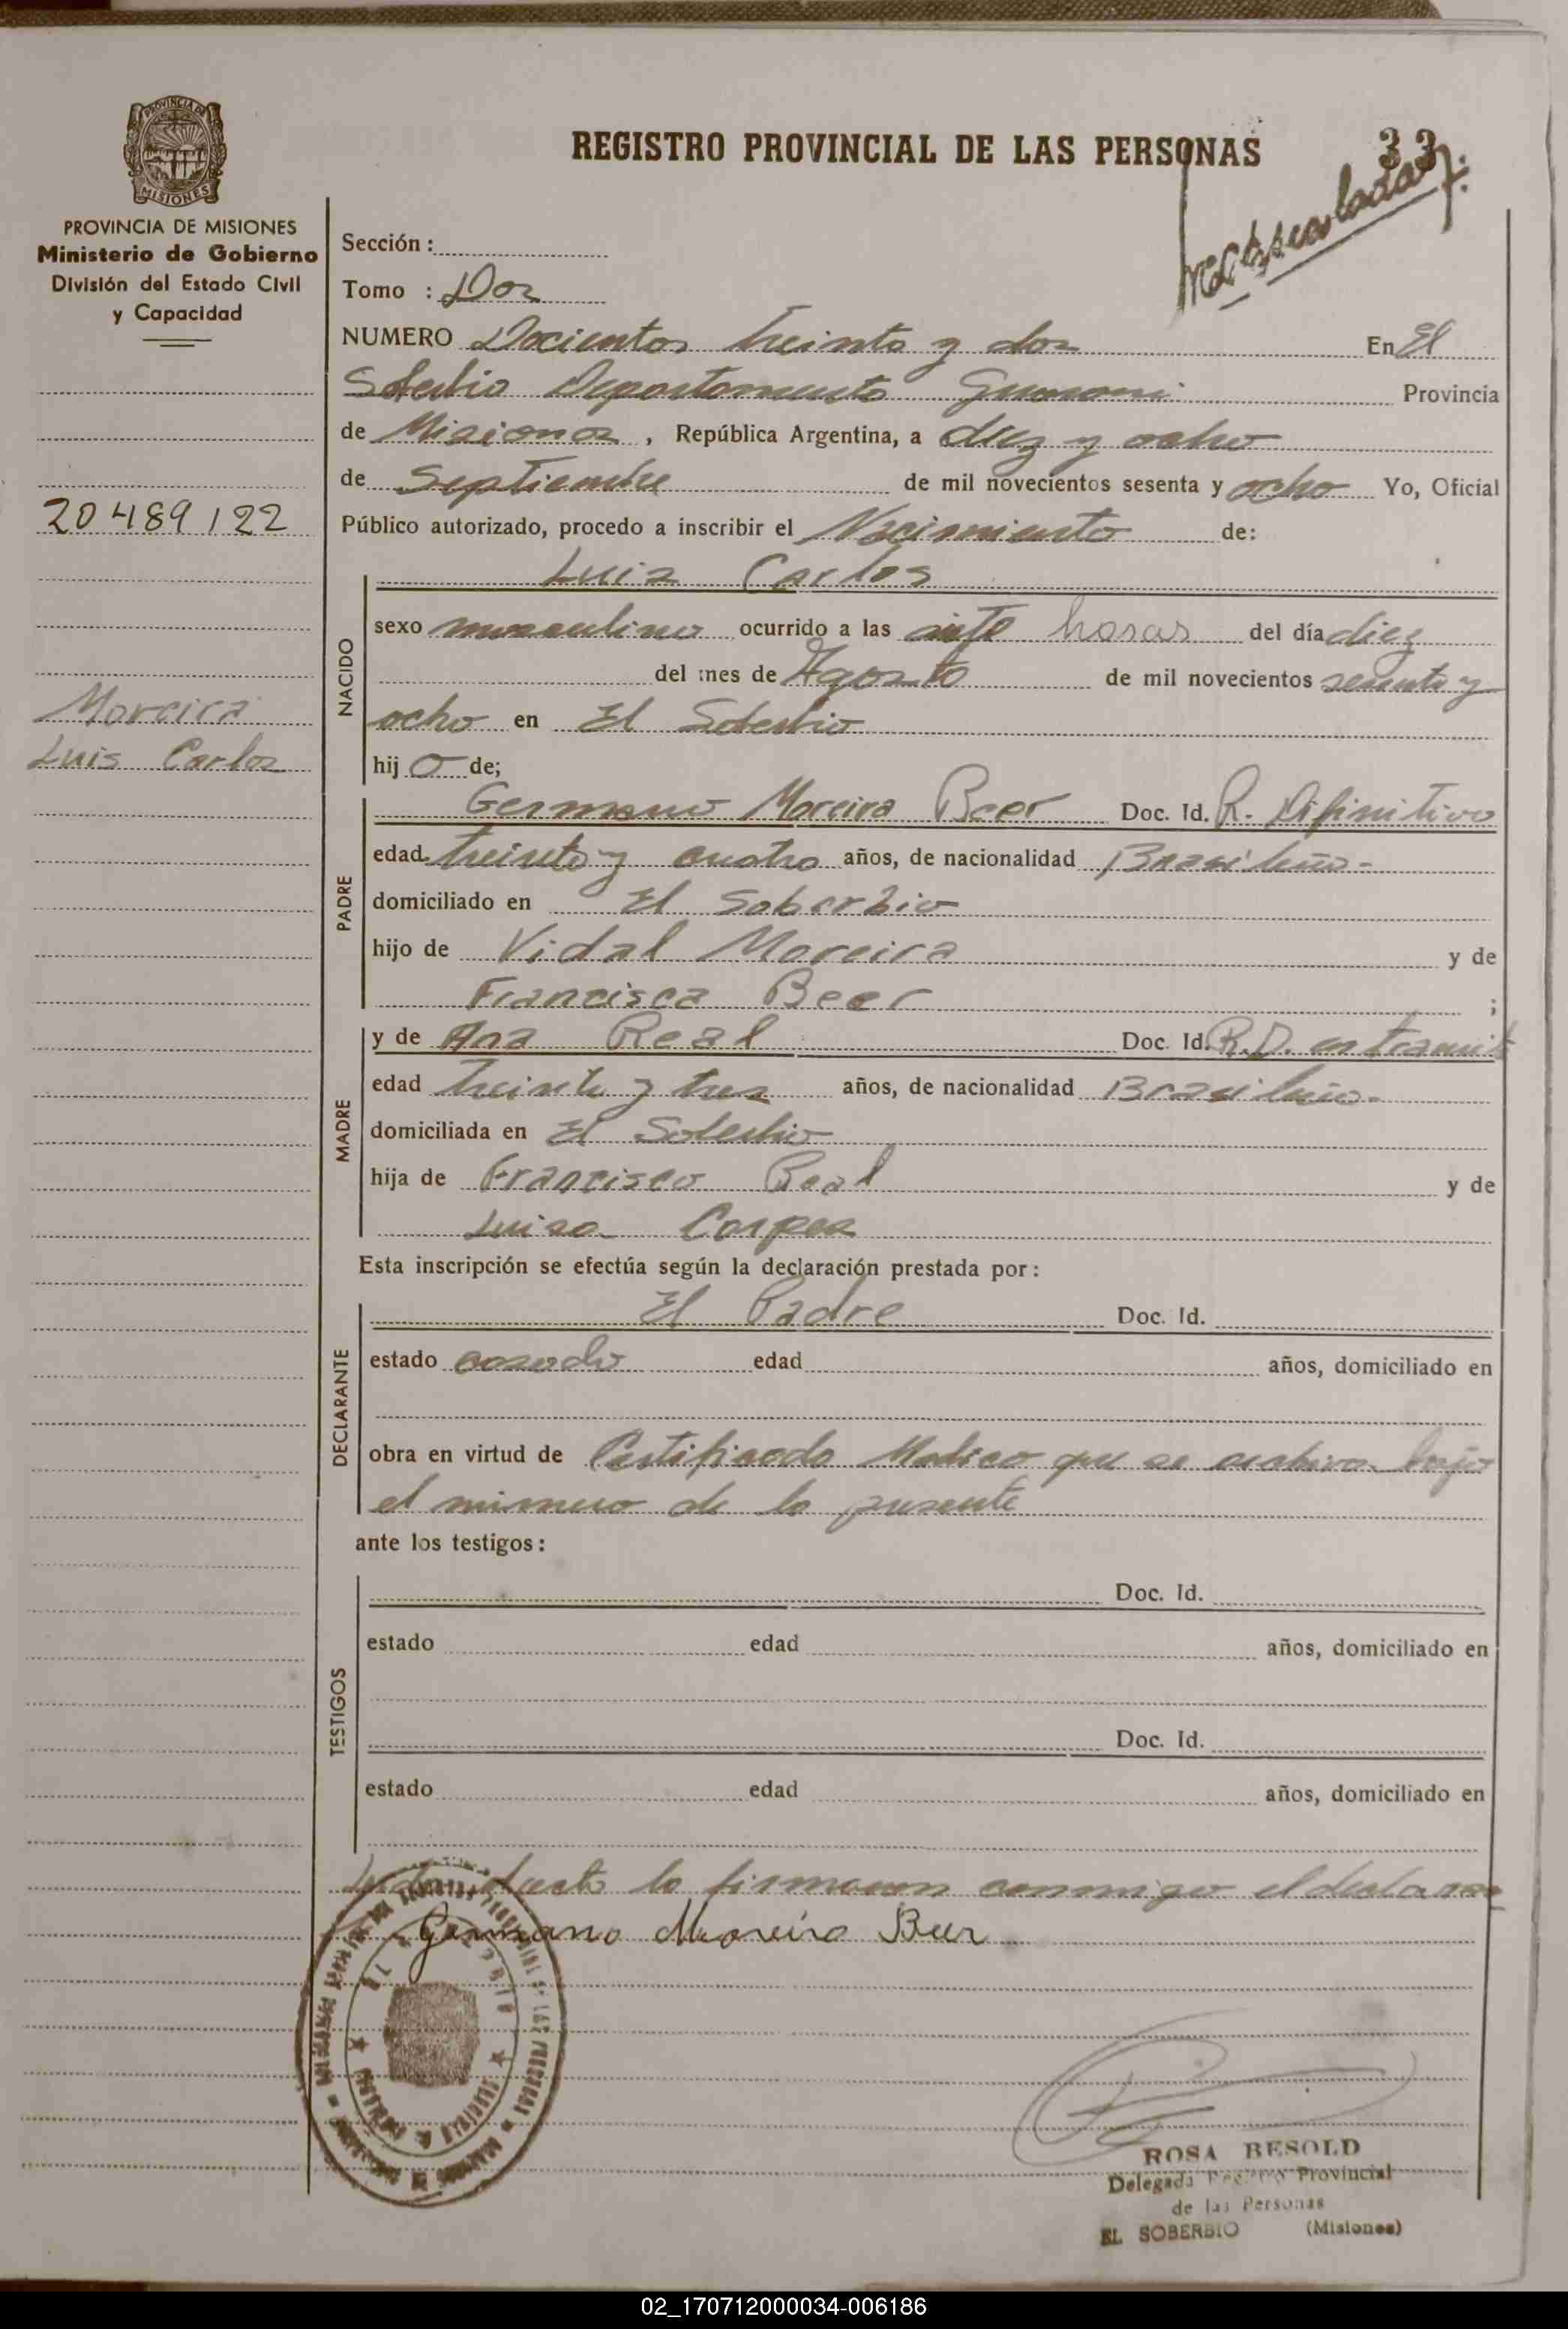 PROVINCIA DE
MISIONES
PROVINCIA DE MISIONES
Ministerio de Gobierno
División del Estado Civil
y Capacidad
20489122
Moreira
Luis Carlos
REGISTRO PROVINCIAL DE LAS PERSONAS
33
Sección :
Tomo : Dos
NUMERO Docientos treinta y dos En El
Soberbio Departamento Guarani Provincia
de Misiones , República Argentina, a diez y ocho
de Septiembre de mil novecientos sesenta y ocho Yo, Oficial
Público autorizado, procedo a inscribir el Nacimiento de:
Luis Carlos
NACIDO
sexo masculino ocurrido a las siete horas del día diez
del mes de Agosto de mil novecientos sesenta y
ocho en El Soberbio
hij o de;
PADRE
Germano Moreira Beer Doc. Id. R. Difinitivo
edad treinta y cuatro años, de nacionalidad Brasileña-
domiciliado en El Soberbio
hijo de Vidal Moreira y de
Francisca Beer ;
MADRE
y de Ana Real Doc. Id. R.D. en tramite
edad treinta y tres años, de nacionalidad Brasileña-
domiciliada en El Soberbio
hija de Francisco Real y de
Luisa
Esta inscripción se efectúa según la declaración prestada por :
DECLARANTE
El Padre Doc. Id.
estado casado edad años, domiciliado en
obra en virtud de Certificado Medico que se archiva bajo
el mismo de la presente
ante los testigos :
TESTIGOS
Doc. Id.
estado edad años, domiciliado en
Doc. Id.
estado edad años, domiciliado en
Leida el acta la firmaron conmigo el declaran
Germano Moreira Beer
ROSA BESOLD
Delegada Registro Provincial
de las Personas
EL SOBERBIO (Misiones)
02_170712000034-006186